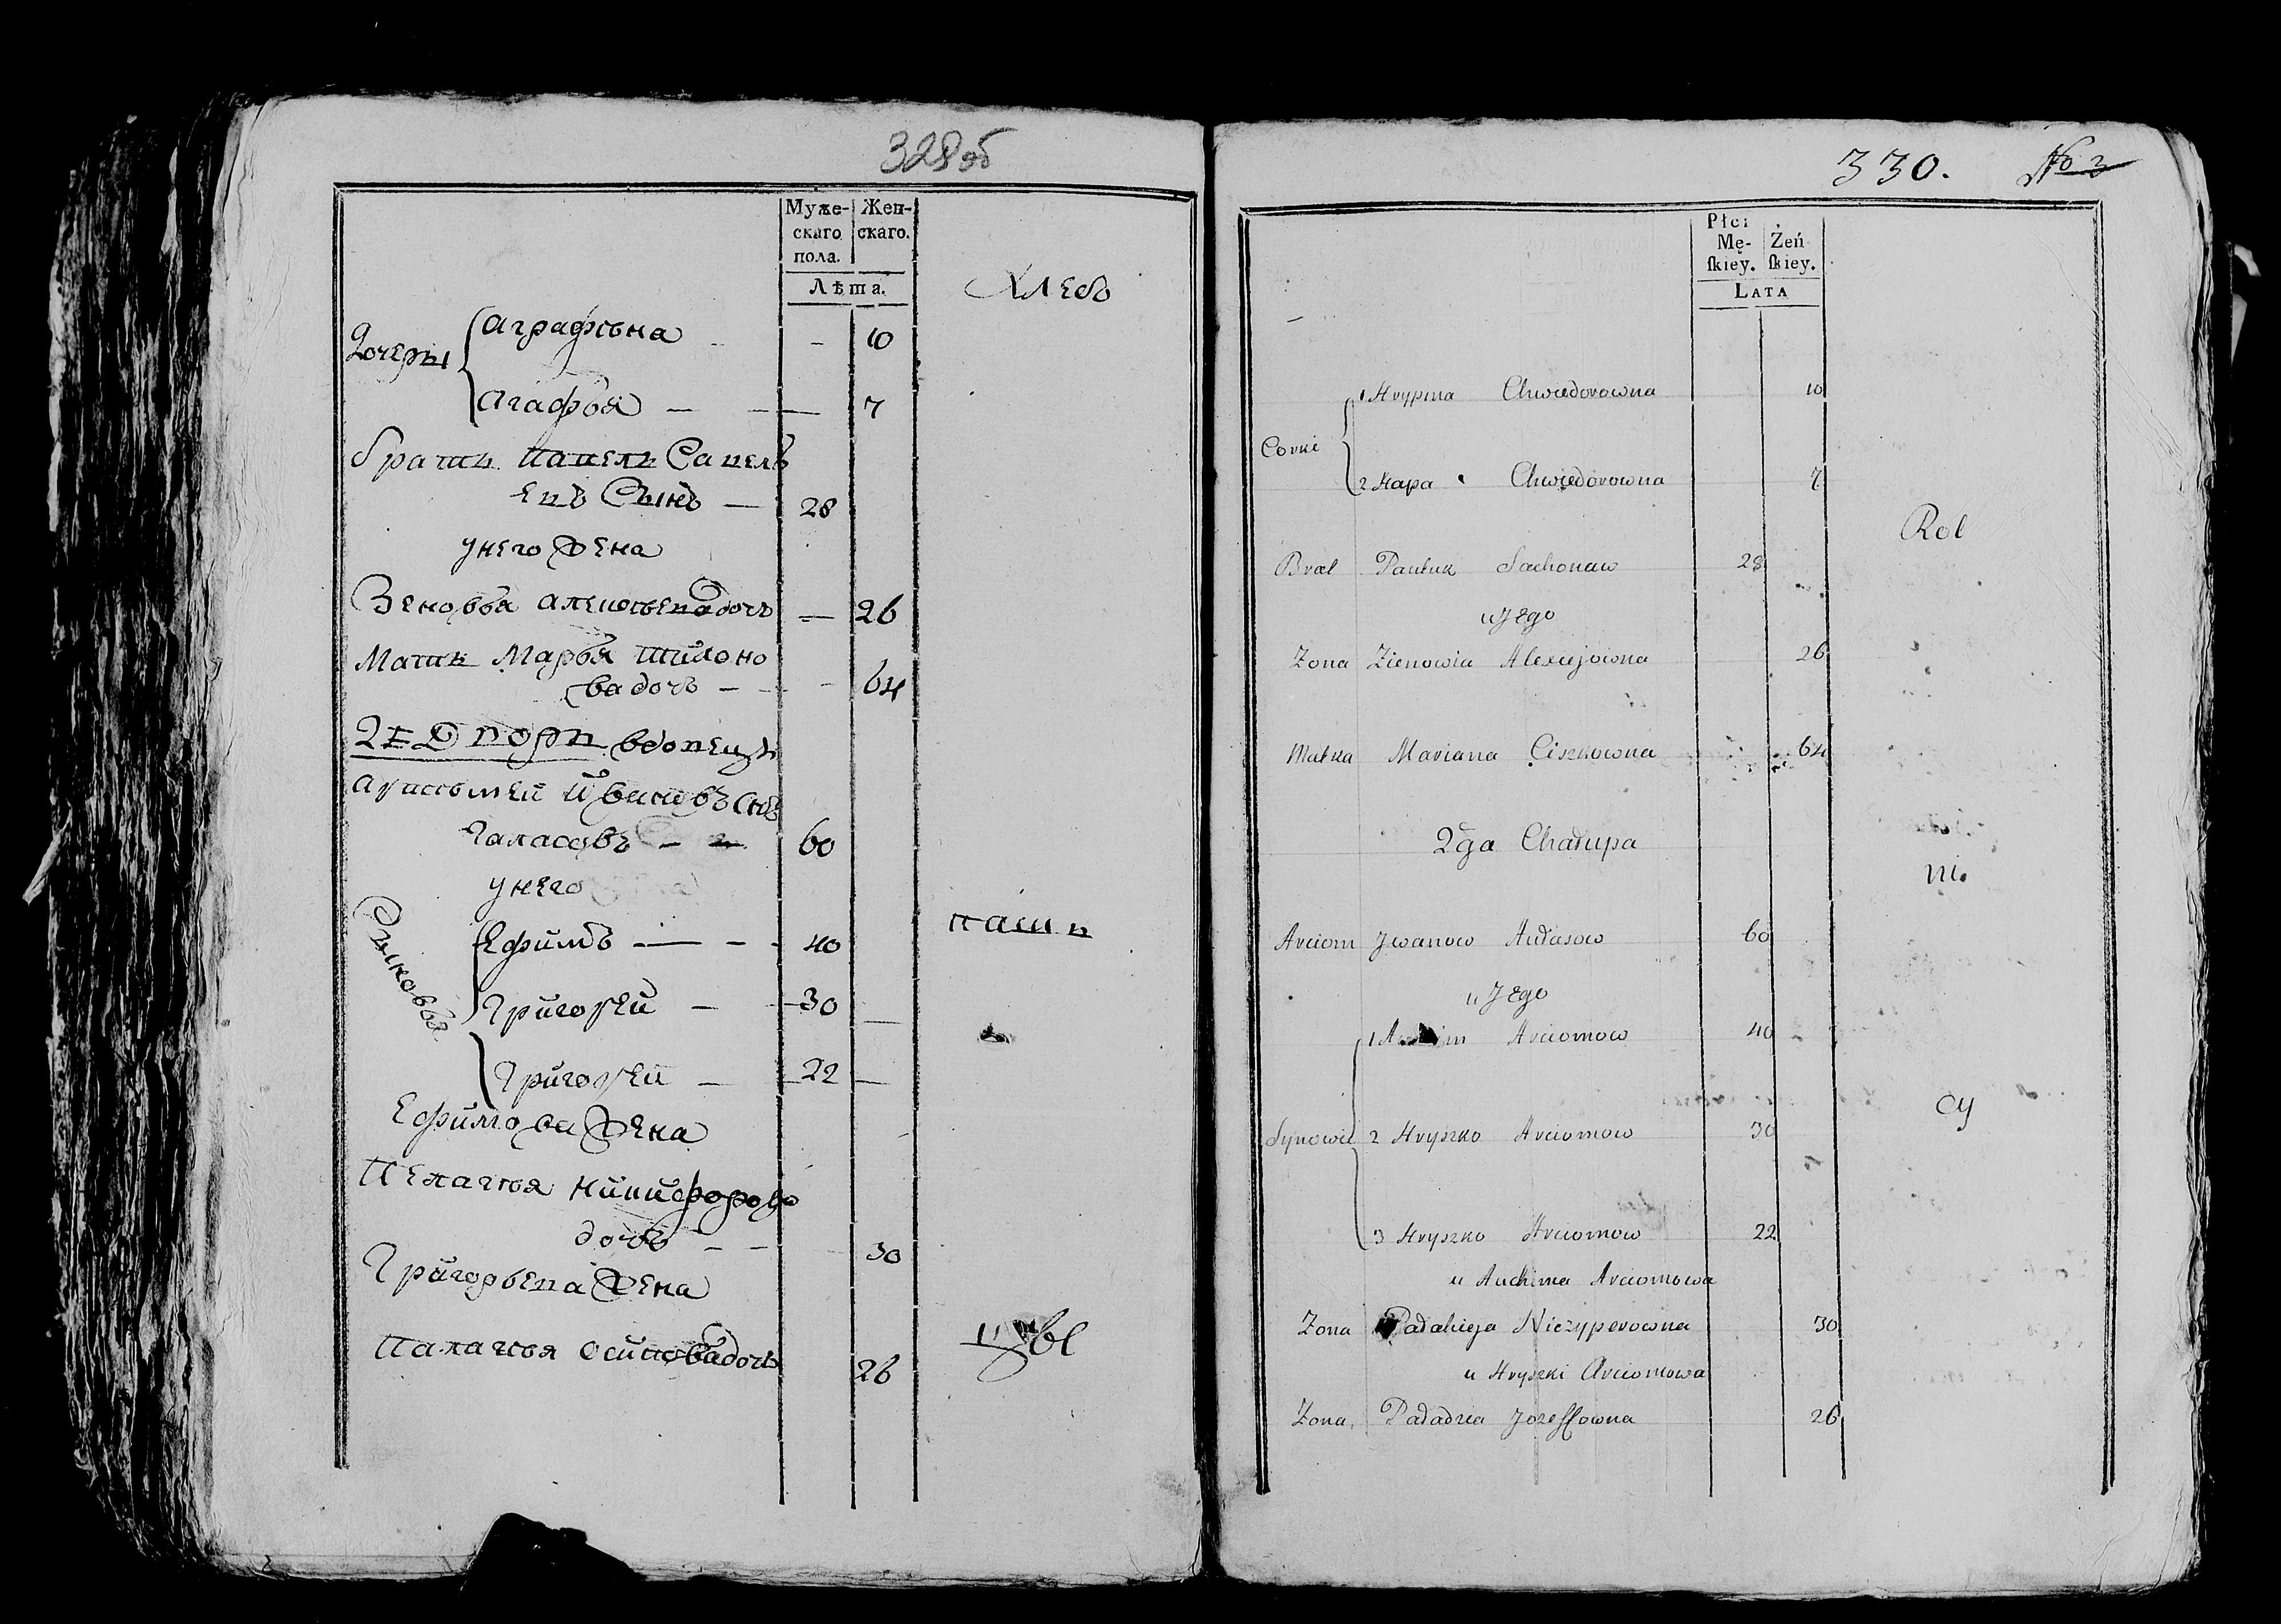 328 об
Муже- Жен-
скаго скаго.
пола.
Лѣта.
Хлебо
Дочеры
Аграфѣна - 10
Агафья - 7
братъ Павелъ Савель
евъ Сынъ - 28
унего жена
Зеновья алексѣева дочь - 26
Мать Марья тихоно
ва дочь - 64
2й Дворъ вдовецъ
Артемей Ивановъ Снъ
Галасовъ - 60
унего
Сыновья
Ефимъ - 40
пашъ
Григорей - 30
Григорей - 22
Ефимова жена
Пелагѣя никифорова
дочь - 30
Григорьева жена
Палагѣя осипова дочь 26
цы
330. No 3
Płci
Mę- Żeń
skiey. skiey.
LATA
Corki
1 Hrypina Chwiedorowna 10
2 Hapa Chwiedorowna 7
Rol
Brat Pauluk Sachonaw 28
u Jego
Zona Zienowia Alexiejowna 26
Matka Mariana Ciszkowna 64
2ga Chałupa
ni.
Arciom Jwanow Aułasow 60
u Jego
1 Arciomow 40
cy
Synowie 2 Hryszko Arciomow 30
3 Hryszko Arciomow 22
u Auchima Arciomowa
Zona Pałahieja Niczyperowna 30
u Hryszki Arciomowa
Zona, Paładzia Jozeffowna 26